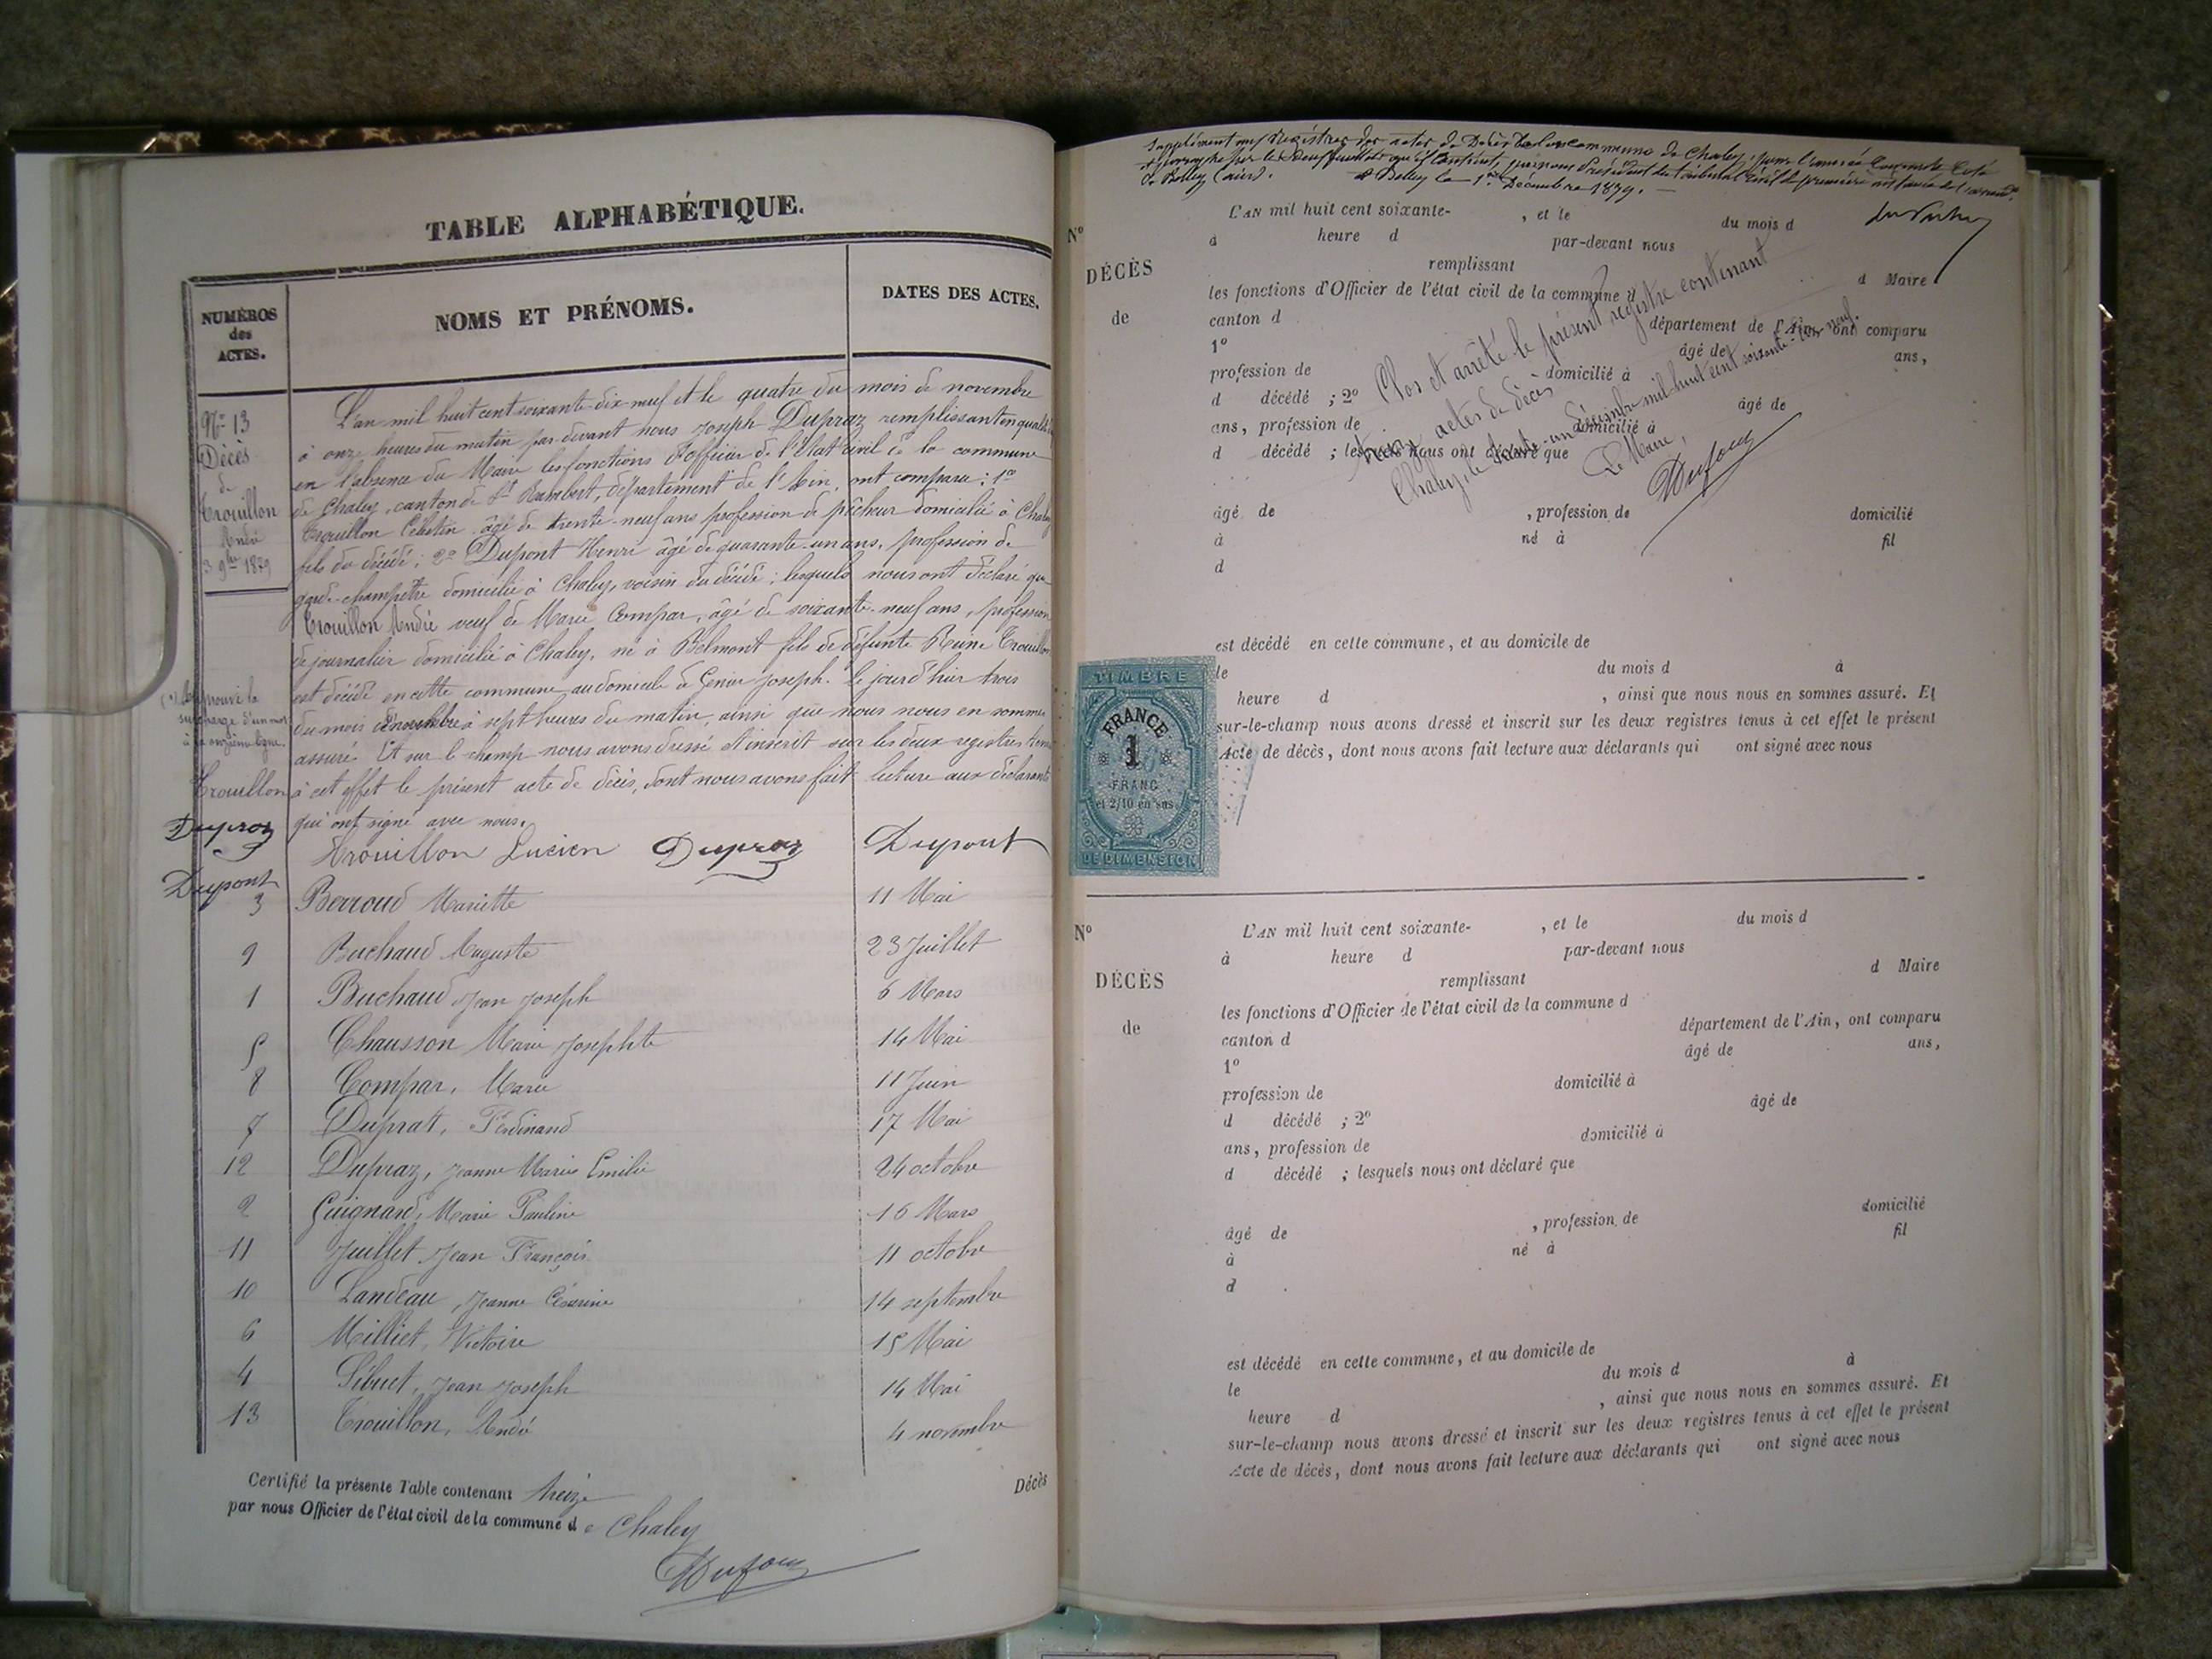 TABLE ALPHABÉTIQUE.
NUMÉROS des ACTES.
NOMS ET PRÉNOMS.
DATES DES ACTES.
No 13
Décès
de
Trouillon
André
3 9bre 1879
L'an mil huit cent soixante-dix-neuf et le quatre du mois de novembre
à onze heures du matin par-devant nous Joseph Dupraz remplissant en qualité
en l'absence du Maire les fonctions d'officier de l'état civil de la commune
de Chaley, canton de St Rambert, département de l'Ain, ont comparu : 1o
Trouillon Célestin âgé de trente-neuf ans profession de pêcheur domicilié à Chaley
fils du décédé ; 2o Dupont Henri âgé de quarante-un ans, profession de
garde-champêtre domicilié à Chaley, voisin du décédé ; lesquels nous ont déclaré que
Trouillon André veuf de Marie Compar, âgé de soixante-neuf ans, profession
de journalier domicilié à Chaley, né à Belmont fils de défunte Reine Trouillon
est décédé en cette commune au domicile de Joseph. le jourd'hui trois
du mois à sept heures du matin, ainsi que nous nous en sommes
assuré. Et sur le champ nous avons dressé et inscrit sur les deux registres tenus
à cet effet le présent acte de décès, dont nous avons fait lecture aux déclarants
qui ont signé avec nous.
(*) Approuvé la
surcharge d'un mot
à la onzième ligne.
Trouillon
Dupraz
Dupont
Trouillon Lucien Dupraz Dupont
3 Berroud Mariette 11 Mai
9 Buchaud Auguste 23 Juillet
1 Buchaud Jean Joseph 6 Mars
5 Chausson Marie Josephte 14 Mai
8 Compar, Marie 11 Juin
7 Duprat, Ferdinand 17 Mai
12 Dupraz, Jeanne Marie Emilie 24 octobre
2 Guignard, Marie Pauline 16 Mars
11 Juillet Jean François 11 octobre
10 Landeau, Jeanne Césarine 14 septembre
6 Milliet, Victoire 15 Mai
4 Sibuet, Jean Joseph 14 Mai
13 Trouillon, André 4 novembre
Certifié la présente Table contenant treize Décès
par nous Officier de l'état civil de la commune de Chaley
Dufour
Supplément aux Registres des actes de Décès de la commune de Chaley, pour l'année courante Coté
et paraphé par les deux feuillets qu'il contient, par nous Président du tribunal civil de première instance de l'arrondt
de Belley (Ain). A Belley le 1er Décembre 1879.
No
DÉCÈS
de
L'AN mil huit cent soixante- , et le du mois d
à heure d par-devant nous
remplissant d Maire
les fonctions d'Officier de l'état civil de la commune d
canton d département de l'Ain, ont comparu
1o âgé de ans,
profession de domicilié à
d décédé ; 2o âgé de
ans, profession de domicilié à
d décédé ; lesquels nous ont déclaré que
âgé de , profession de domicilié
à né à fil
d
Clos et arrêté le présent registre contenant
treize actes de décès
Chaley, le trente-un décembre mil huit cent soixante-dix-neuf.
Le Maire,
Dufour
est décédé en cette commune, et au domicile de
le du mois d à
heure d , ainsi que nous nous en sommes assuré. Et
sur-le-champ nous avons dressé et inscrit sur les deux registres tenus à cet effet le présent
Acte de décès, dont nous avons fait lecture aux déclarants qui ont signé avec nous
TIMBRE
FRANCE
1
FRANC
et 2/10 en sus
DE DIMENSION
No
DÉCÈS
de
L'AN mil huit cent soixante- , et le du mois d
à heure d par-devant nous
remplissant d Maire
les fonctions d'Officier de l'état civil de la commune d
canton d département de l'Ain, ont comparu
1o âgé de ans,
profession de domicilié à
d décédé ; 2o âgé de
ans, profession de domicilié à
d décédé ; lesquels nous ont déclaré que
âgé de , profession de domicilié
à né à fil
d
est décédé en cette commune, et au domicile de
le du mois d à
heure d , ainsi que nous nous en sommes assuré. Et
sur-le-champ nous avons dressé et inscrit sur les deux registres tenus à cet effet le présent
Acte de décès, dont nous avons fait lecture aux déclarants qui ont signé avec nous